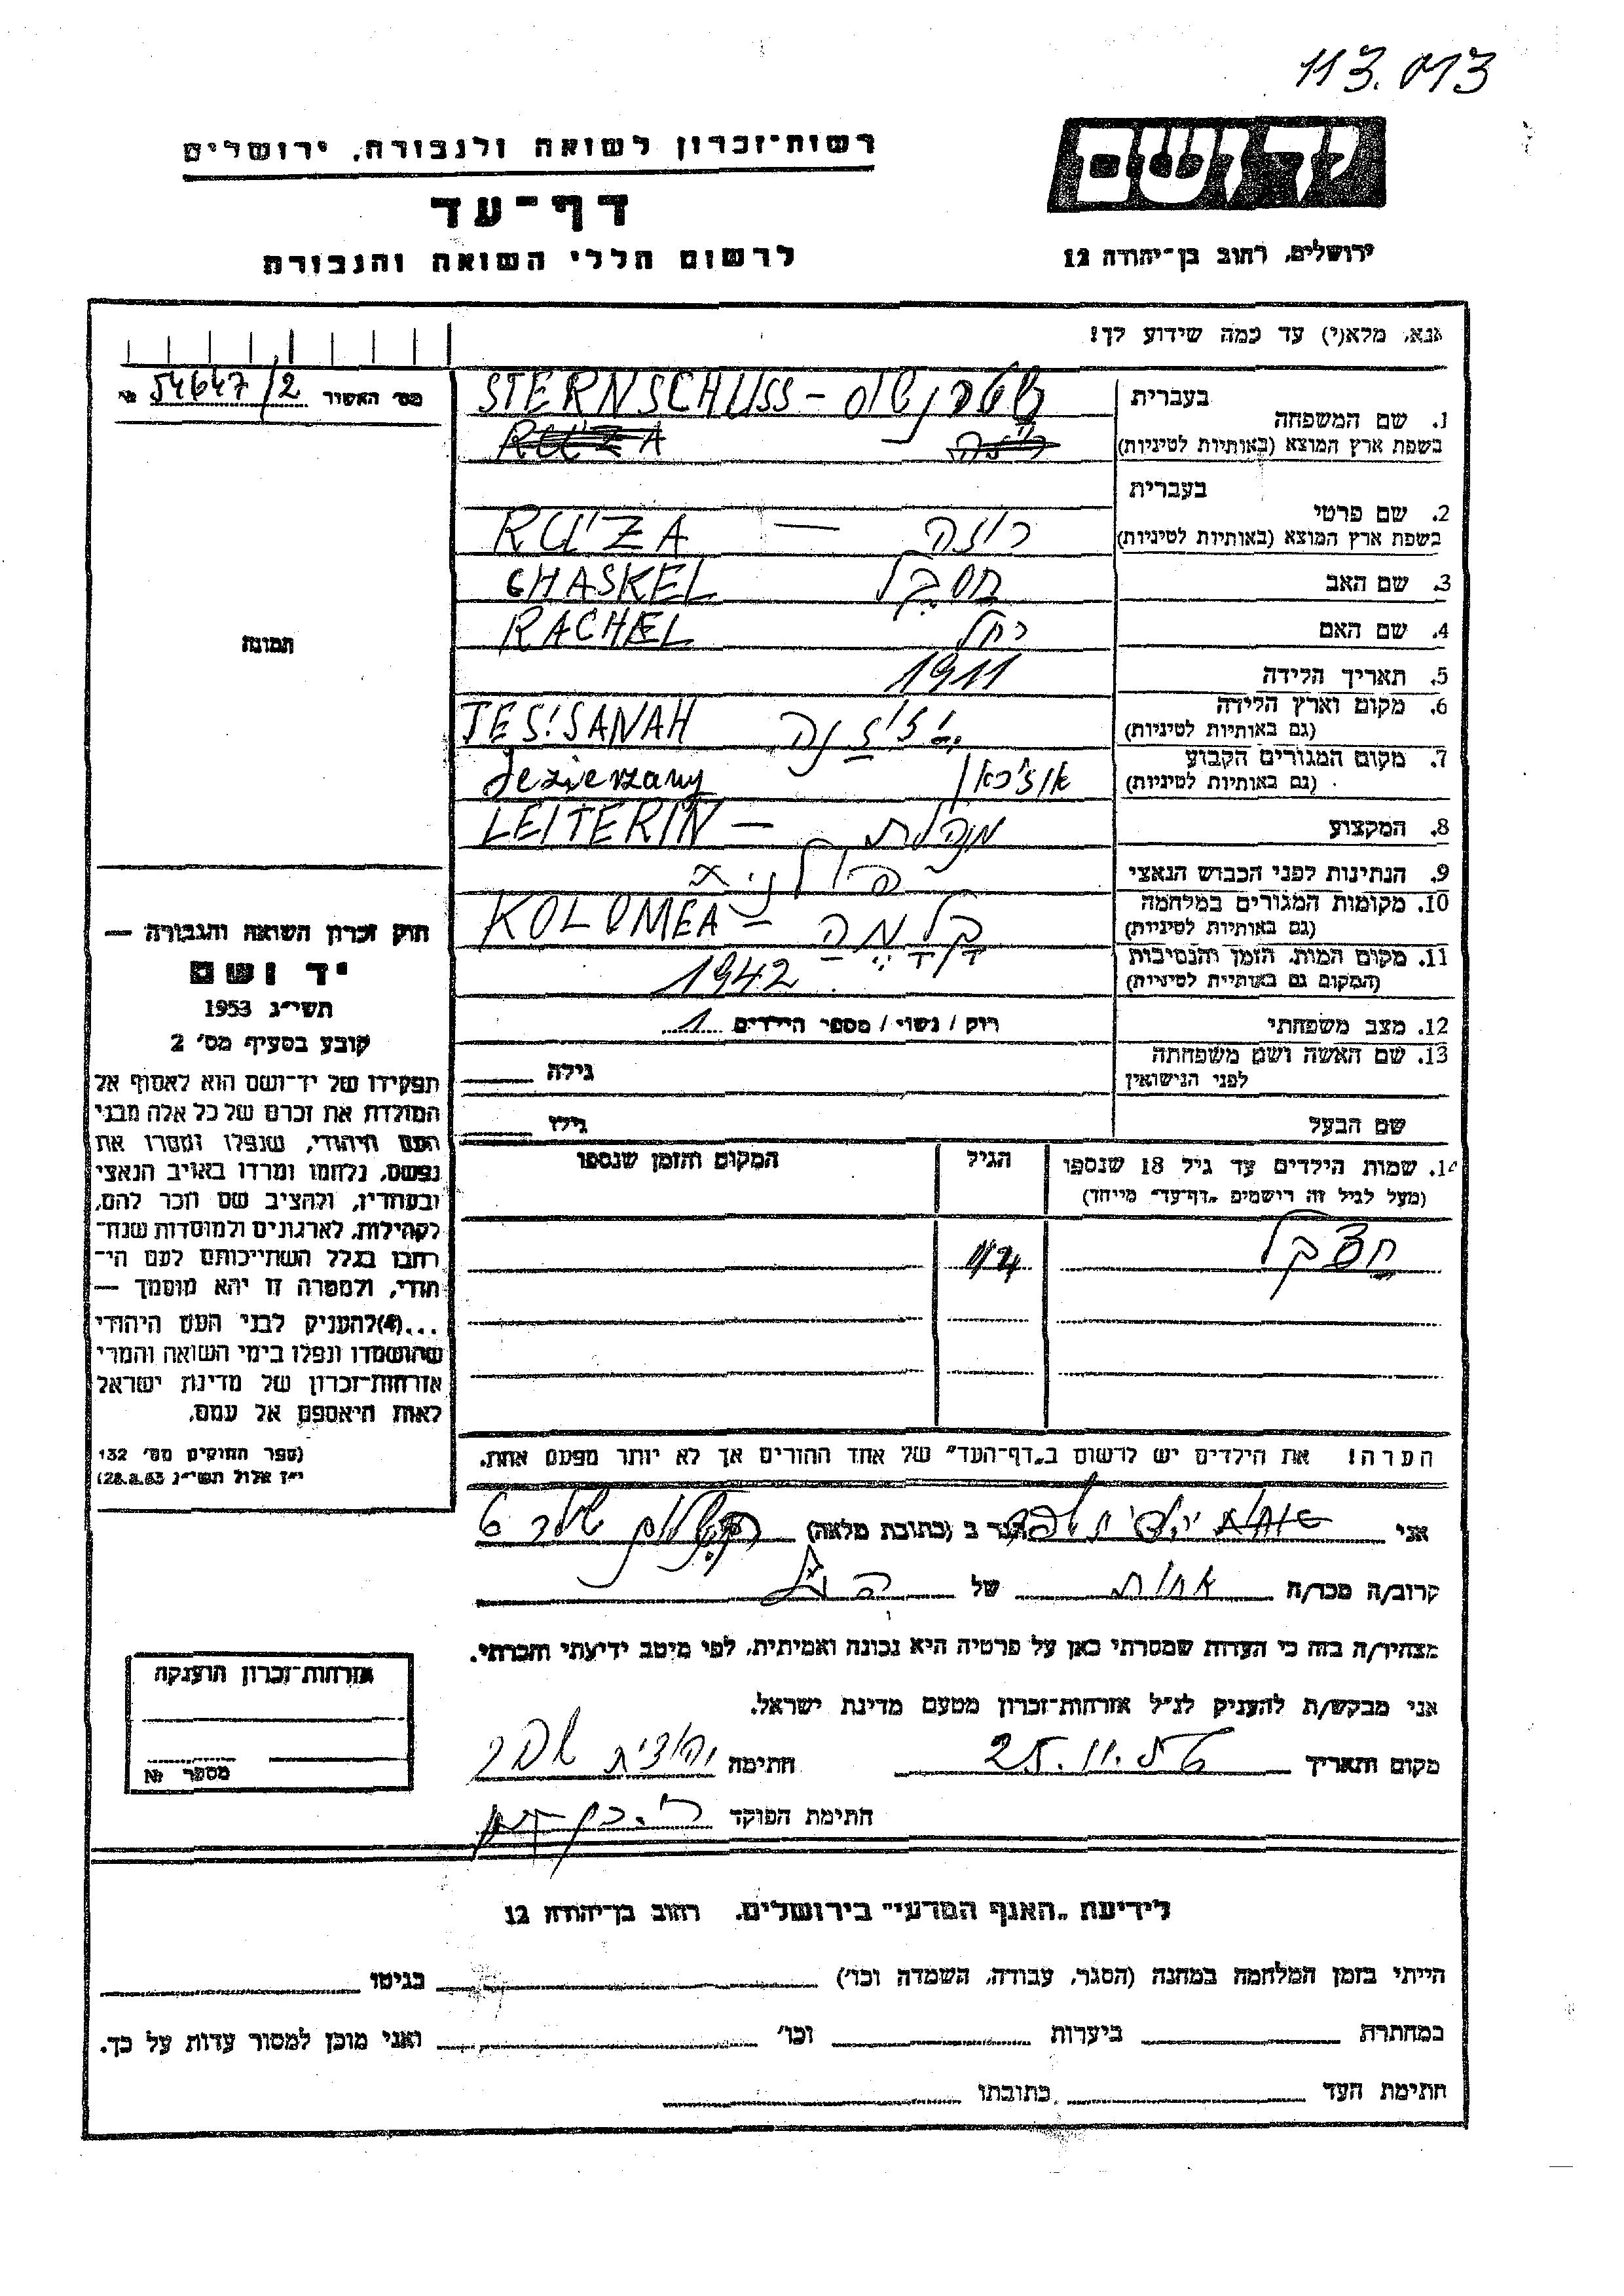 113.013
יד ושם
רשות-זכרון לשואה ולגבורה, ירושלים
דף-עד
לרשום חללי השואה והגבורה
ירושלים, רחוב בן-יהודה 12
אנא, מלא(י) עד כמה שידוע לך!
מס׳ האשור 54647/2 №
תמונה
1. שם המשפחה בעברית
בשפת ארץ המוצא (באותיות לטיניות)
STERNSCHUSS - שטרנשוס
RUZA רוזה
2. שם פרטי בעברית
בשפת ארץ המוצא (באותיות לטיניות)
RUZA — רוזה
3. שם האב CHASKEL חסקל
4. שם האם RACHEL רחל
5. תאריך הלידה 1911
6. מקום וארץ הלידה
(גם באותיות לטיניות)
JES!SANAH
7. מקום המגורים הקבוע
(גם באותיות לטיניות)
Jezierzany
8. המקצוע LEITERIN — מנהלת
9. הנתינות לפני הכבוש הנאצי פולניה
10. מקומות המגורים במלחמה
(גם באותיות לטיניות)
KOLOMEA - קלמיה
11. מקום המות, הזמן והנסיבות
(המקום גם באותיות לטיניות)
1942
12. מצב משפחתי רוק / נשוי / מספר הילדים 1
13. שם האשה ושם משפחתה
לפני הנישואין
גילה
שם הבעל גילו
14. שמות הילדים עד גיל 18 שנספו
(מעל לגיל זה רישמים „דף-עד״ מייחד)
הגיל
המקום והזמן שנספו
חצקל
הערה! את הילדים יש לרשום ב„דף-העד״ של אחד ההורים אך לא יותר מפעם אחת.
חוק זכרון השואה והגבורה —
יד ושם
תשי״ג 1953
קובע בסעיף מס׳ 2
תפקידו של יד-ושם הוא לאסוף אל
המולדת את זכרם של כל אלה מבני
העם היהודי, שנפלו ומסרו את
נפשם, נלחמו ומרדו באויב הנאצי
ובעוזריו, ולהציב שם וזכר להם,
לקהילות, לארגונים ולמוסדות שנח-
רבו בגלל השתייכותם לעם הי-
הודי, ולמטרה זו יהא מוסמך —
...(4) להעניק לבני העם היהודי
שהושמדו ונפלו בימי השואה והמרי
אזרחות-זכרון של מדינת ישראל
לאות היאספם אל עמם.
(ספר החוקים מס׳ 132
י״ז אלול תשי״ג 28.8.53)
אני הגר ב (כתובת מלאה)
קרוב/ה מכר/ה אחות של
מצהיר/ה בזה כי העדות שמסרתי כאן על פרטיה היא נכונה ואמיתית, לפי מיטב ידיעתי והכרתי.
אני מבקש/ת להעניק לנ״ל אזרחות-זכרון מטעם מדינת ישראל.
מקום ותאריך חתימה יהודית
חתימת הפוקד
אזרחות-זכרון הוענקה
מספר №
לידיעת „האגף המדעי״ בירושלים, רחוב בן-יהודה 12
הייתי בזמן המלחמה במחנה (הסגר, עבודה, השמדה וכו׳) בגיטו
במחתרת ביערות וכו׳ ואני מוכן למסור עדות על כך.
חתימת העד כתובתו